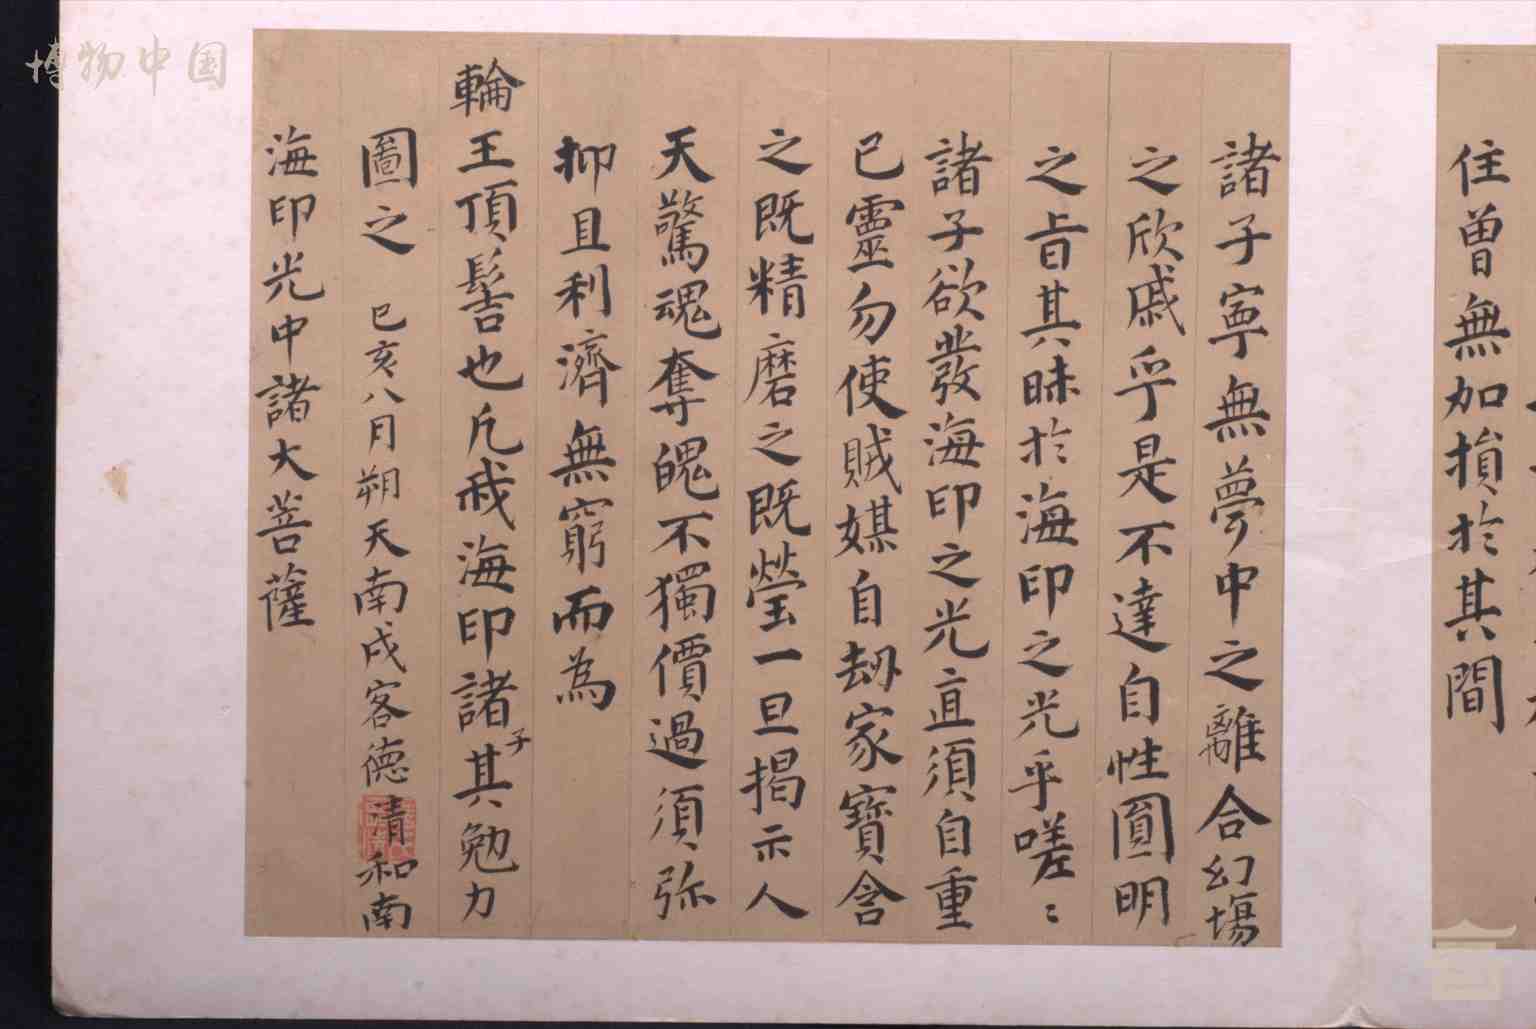 住曾無加損於其間
諸子寧無夢中之離合幻場
之欣戚乎是不達自性圓明
之旨其昧於海印之光乎嗟〻
諸子欲發海印之光直須自重
己靈勿使賊媒自劫家寶含
之既精磨之既瑩一旦揭示人
天驚魂奪魄不獨價過須弥
抑且利濟無窮而為
輪王頂髻也凡我海印諸子其勉力
圖之 己亥八月朔天南戍客德清和南
海印光中諸大菩薩
博物中国